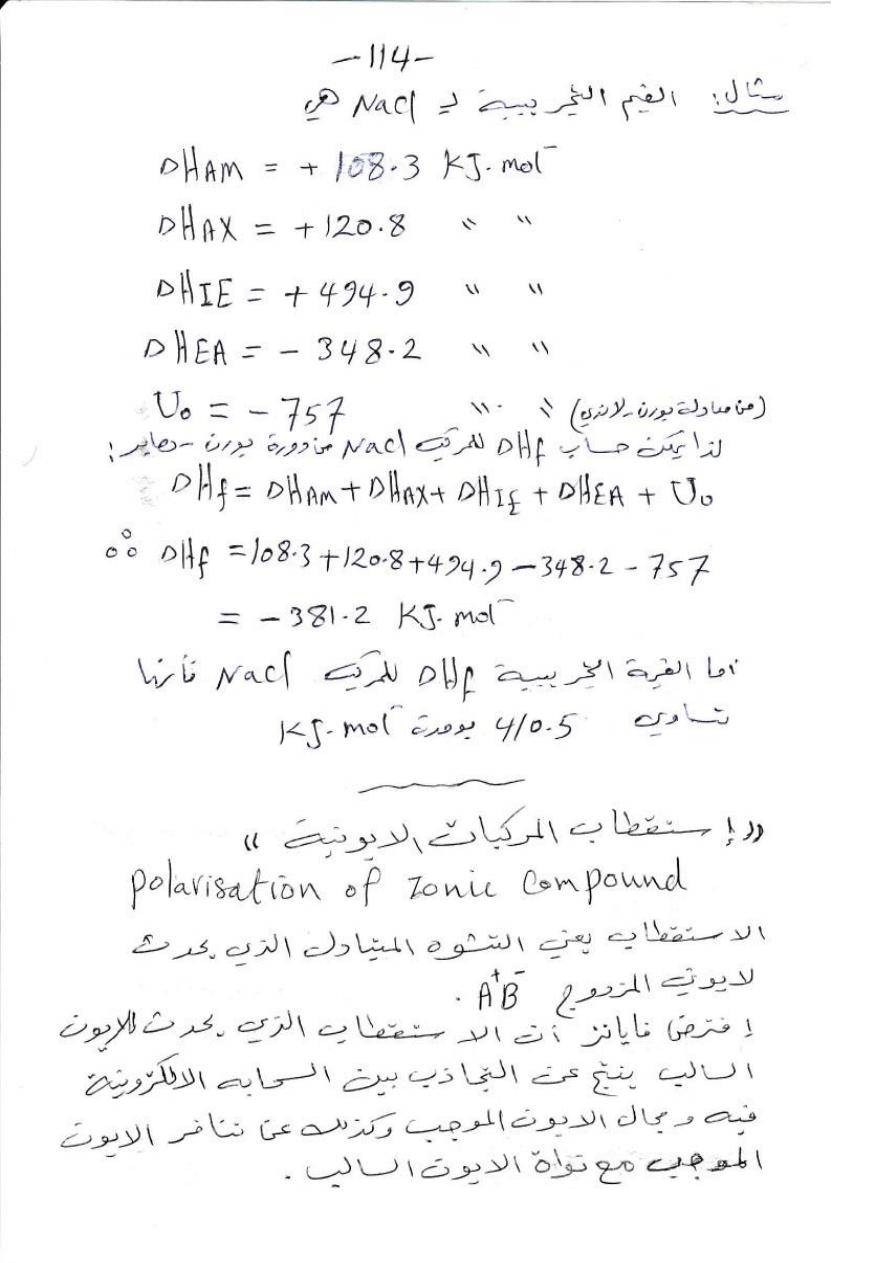 -114-
مثال: القيم التجريبية لـ Nacl هي
DHAM = + 108.3 KJ. mol⁻
DHAX = + 120.8 〃 〃
DHIE = + 494.9 〃 〃
DHEA = - 348.2 〃 〃
U₀ = - 757 〃 〃 (من معادلة بورن-لاندي)
لذا يمكن حساب DHf للمركب Nacl من دورة بورن-هابر:
DHf = DHAM + DHAX + DHIE + DHEA + U₀
∴ DHf = 108.3 + 120.8 + 494.9 - 348.2 - 757
= - 381.2 KJ. mol⁻
أما القيمة التجريبية DHf للمركب Nacl فأنها
تساوي 410.5 بوحدة KJ. mol⁻
((إستقطاب المركبات الايونية))
Polarisation of Ionic Compound
الاستقطاب يعني التشوه المتبادل الذي يحدث
لايوني المزدوج A⁺B⁻ .
إفترض فايانز أن الاستقطاب الذي يحدث للايون
السالب ينتج عن التجاذب بين السحابه الالكترونية
فيه ومجال الايون الموجب وكذلك عن تنافر الايون
الموجب مع نواة الايون السالب .